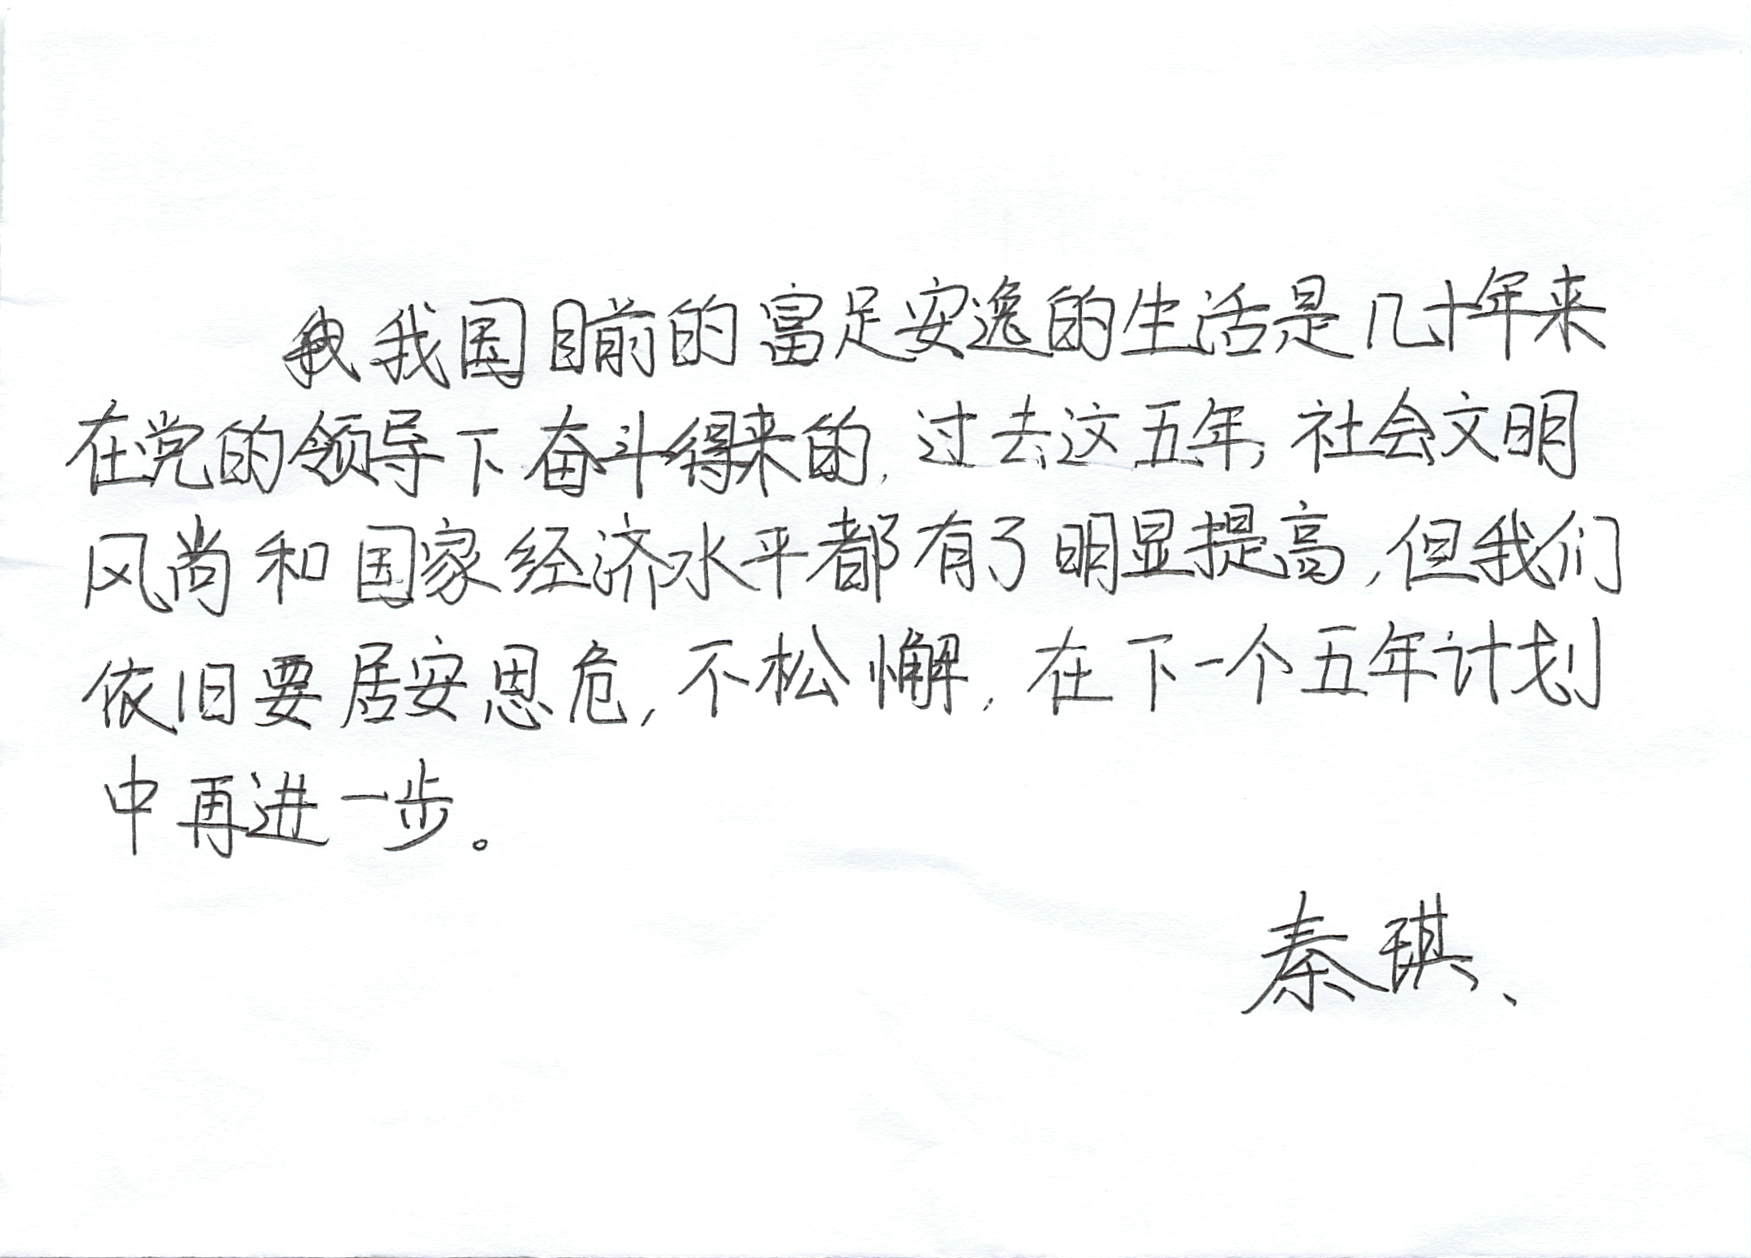 我国目前的富足安逸的生活是几十年来
在党的领导下奋斗得来的，过去这五年，社会文明
风尚和国家经济水平都有了明显提高，但我们
依旧要居安思危，不松懈，在下一个五年计划
中再进一步。
秦琪、